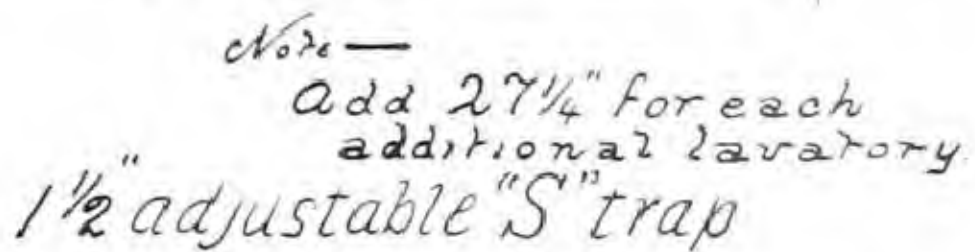 Note —
Add 27¼" for each
additional lavatory
1½" adjustable "S" trap